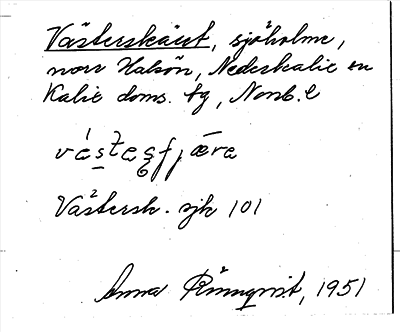 Västerskäret, sjöholme,
norr Halsön, Nederkalix sn
Kalix doms. tg, Norrb. l
Västersk. sjk 101
Anna Rönnqvist, 1951